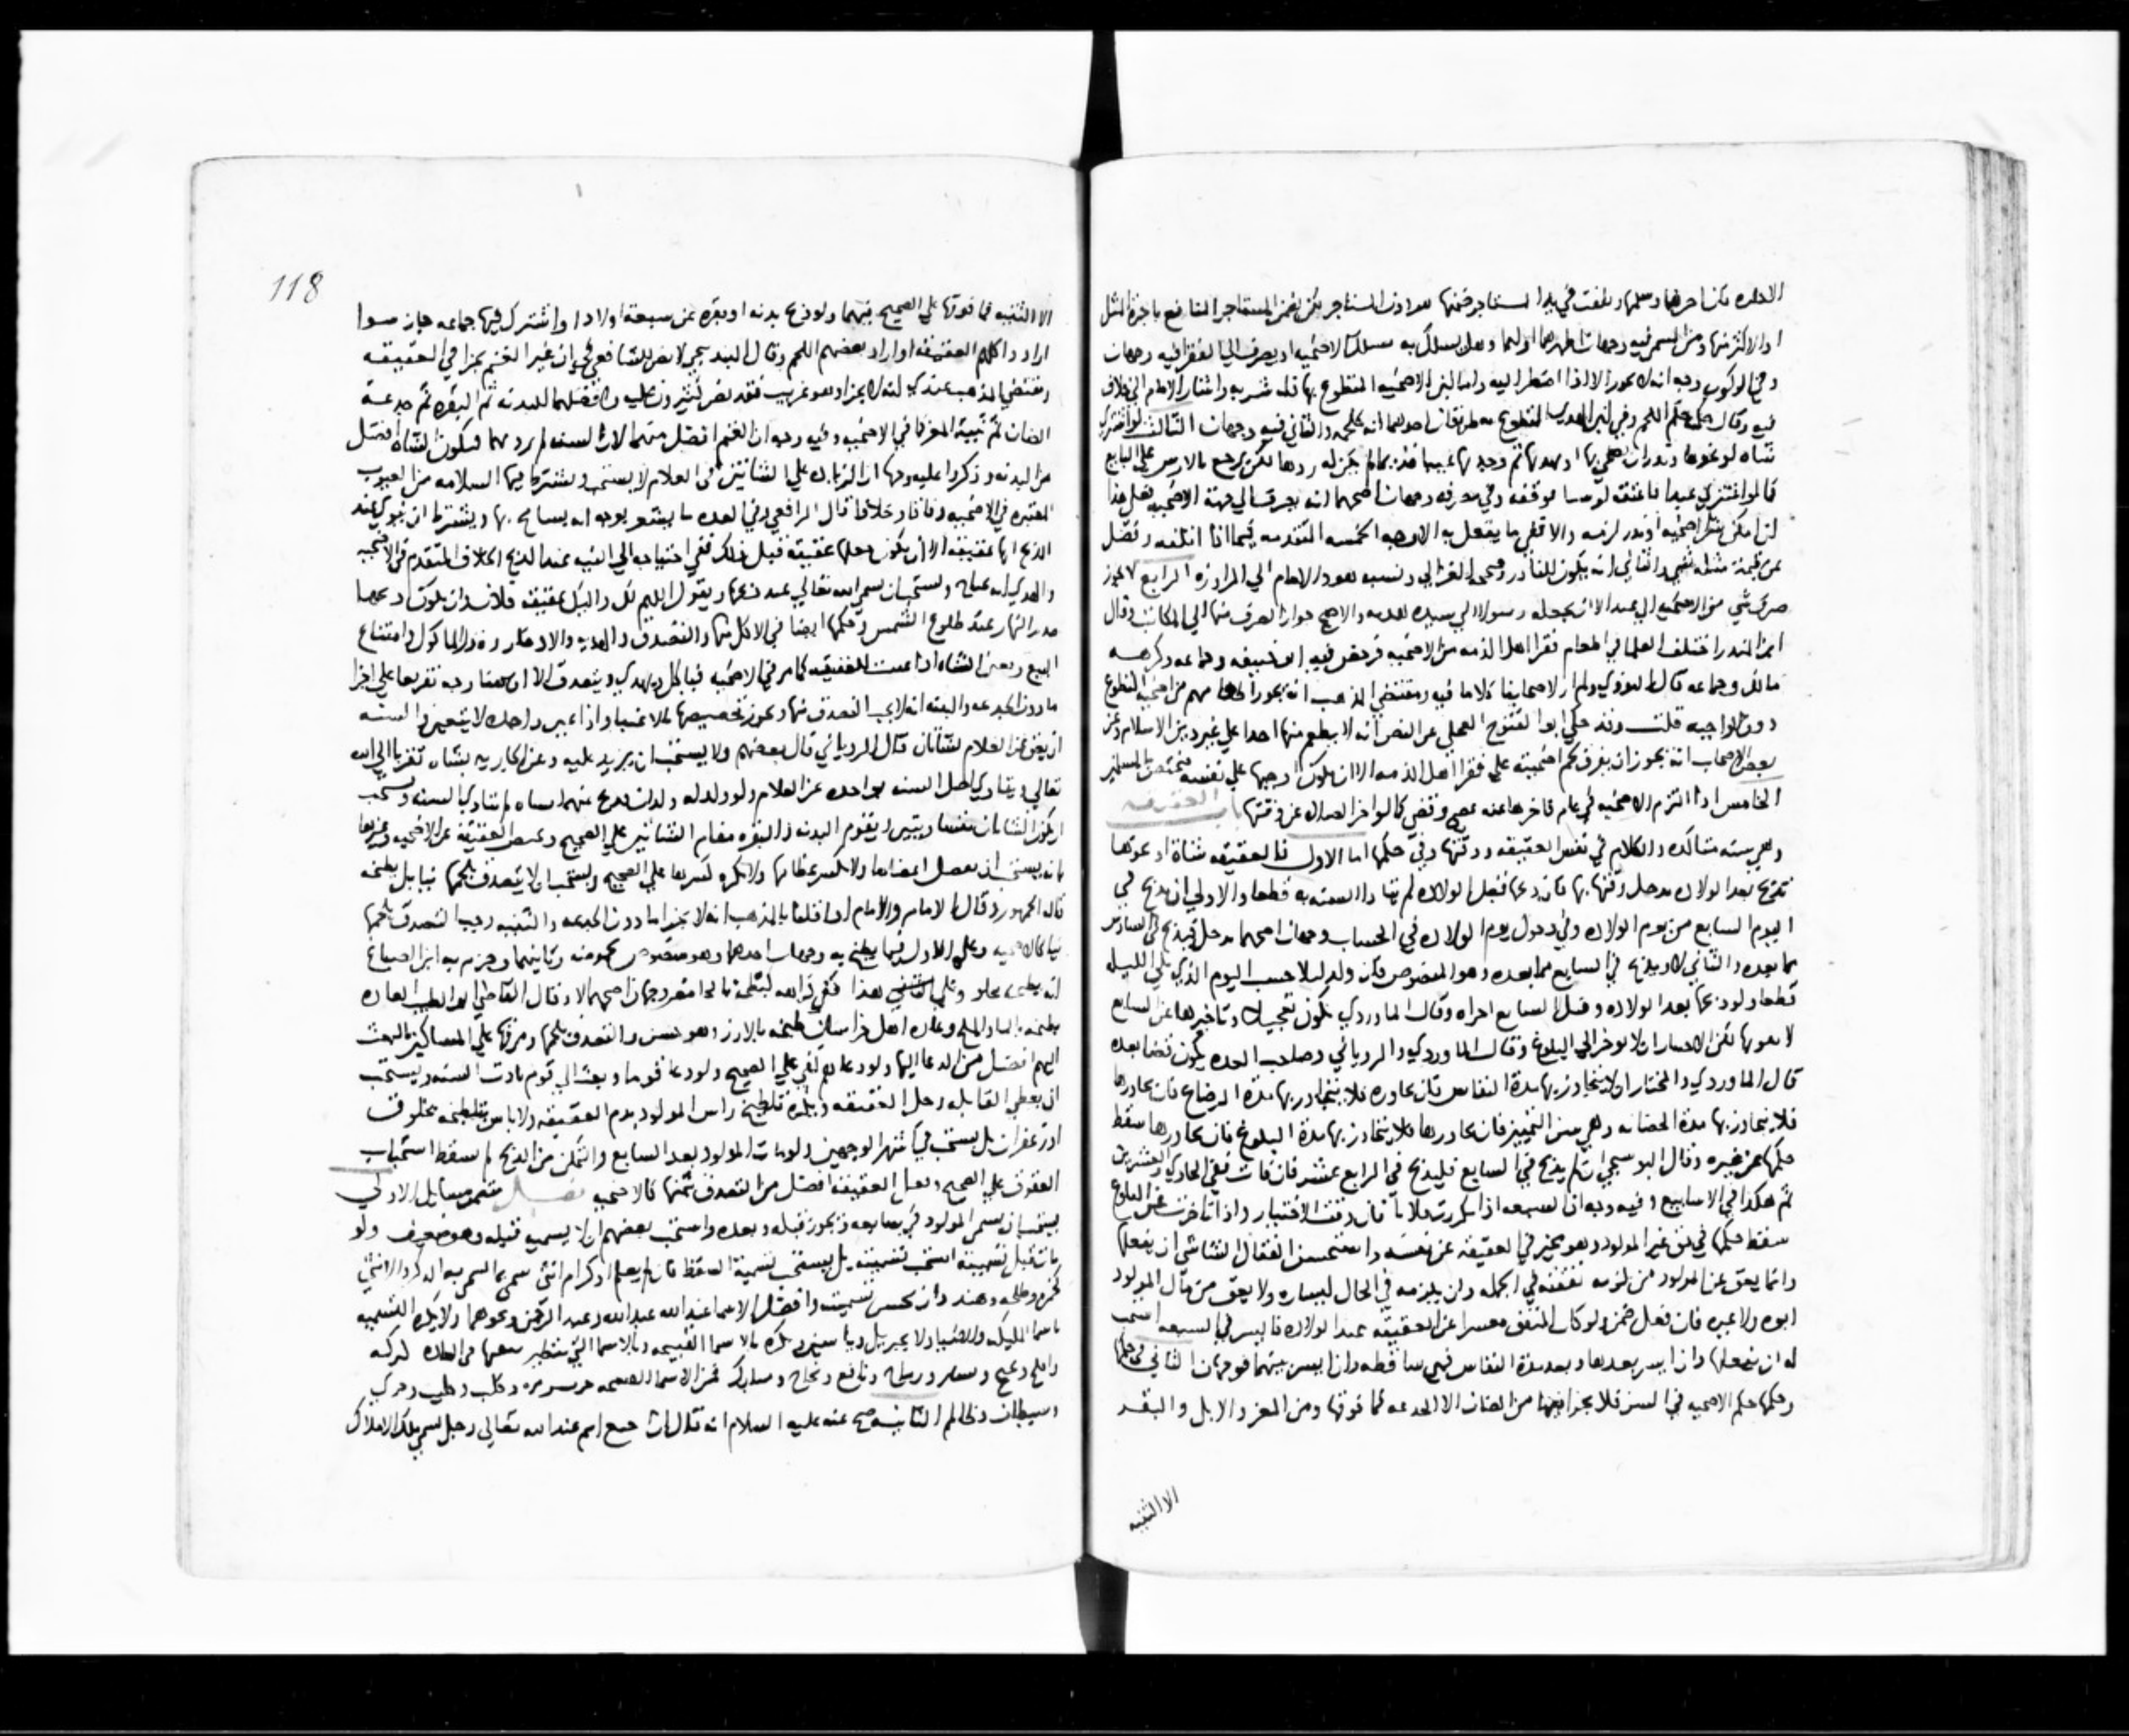 الاجاره فان اجرهما وسلمها وتلفت في يد المستاجر ضمنها المستاجر يضمن المستاجر المنافع باجرة المثل
او الاكثر منها ومن المسمى فيه وجهان اظهرهما اولهما وهل يسلك به مسلك الاضحيه او يصرف الى الفقرا فيه وجهان
وفي الركوب وجه انه لا يجوز الا اذا اضطر اليه واما لبن الاضحيه المتطوع بها فله شربه واشار الامام الى خلاف
فيه وقال حكمه حكم اللحم وفي لبن الهدي المتطوع به طريقان احدهما انه كلحمه والثاني فيه وجهان الثالث لو اشترى
شاه لو نحوها ونذر ان يضحي بها او يهديها ثم وجد بها عيبا قديما لم يكن له ردها لكن يرجع بالارش على البايع
كما لو اشترى عبدا فاعتقه ثم علم عيبه وفي مصرفه وجهان اصحهما انه يصرف الى جهة الاضحيه فعلى هذا
ان امكن شرا اضحيه او هدي لزمه والا ففي ما يفعل به الاوجه الخمسه المتقدمه فيما اذا اتلفه وفضل
عن قيمة مثله شي والثاني انه يكون للناذر وصححه الغزالي ونسبه الامام الى المراوزه الرابع لا يجوز
صرف شي من الاضحيه الى عبد الا ان يجعله رسولا الى سيده هديه والاصح جواز الصرف منها الى المكاتب وقال
ابن المنذر اختلف العلما في اطعام فقرا اهل الذمه من الاضحيه فرخص فيه ابو حنيفه وجماعه وكرهه
مالك وجماعه قال النووي ولم ار لاصحابنا كلاما فيه ومقتضى المذهب انه يجوز اطعامهم من اضحية التطوع
دون الواجبه قلت وقد حكى ابو الفتوح العجلي عن النص انه لا يطعم منها احدا على غير دين الاسلام وعن
بعض الاصحاب انه يجوز ان يفرق لحم اضحيته على فقرا اهل الذمه الا ان يكون اوجبها على نفسه فيختص بالمسلمين
الخامس اذا التزم الاضحيه في عام فاخرها عنه عصى وقضى كما لو اخر الصلاه عن وقتها باب العقيقه
وهي سنه متاكده والكلام في نفس العقيقه ووقتها وفي حكمها اما الاول فالعقيقه شاة او نحوها
تذبح بعد الولاده يدخل وقتها بها فان ذبحها قبل الولاده لم تتادا السنه به قطعا والاولى ان يذبح في
اليوم السابع من يوم الولاده وفي دخول يوم الولاده في الحساب وجهان اصحهما يدخل فيذبح في السادس
مما بعده والثاني لا ويذبح في السابع مما بعده وهو المنصوص فان ولد ليلا حسب اليوم الذي يلي الليله
قطعا ولو ذبحها بعد الولاده وقبل السابع اجزاه وقال الماوردي يكون تعجيلا وتاخيرها عن السابع
لا يفوتها لكن الاختيار ان لا يوخر الى البلوغ وقال الماوردي والروياني وصاحب العده تكون قضا بعده
قال الماوردي والمختار ان لا يتجاوز بها مدة النفاس فان جاوزه فلا يتجاوز بها مدة الرضاع فان جاوزها
فلا يتجاوز بها مدة الحضانه وهي سن التمييز فان جاوزها فلا يتجاوز بها مدة البلوغ فان جاوزها سقط
حكمها عن غيره وقال البوشنجي ان لم يذبح في السابع فليذبح في الرابع عشر فان فات ففي الحادي والعشرين
ثم هكذا في الاسابيع وفيه وجه ان السبعه اذا تكررت ثلاثا فات وقت الاختيار واذا تاخرت عن البلوغ
سقط حكمها في حق غير المولود وهو مخير في العقيقه عن نفسه واستحسن القفال الشاشي ان يفعلها
وانما يعق عن المولود من تلزمه نفقته في الجمله وان لم يلزمه في الحال ليساره ولا يعق من مال المولود
ابوه ولا غيره فان فعل ضمن ولو كان المنفق معسرا عن العقيقه عند الولاده فايسر في السبعه استحب
له ان يفعلها وان ايسر بعدها وبعد مدة النفاس فهي ساقطه وان ايسر بينهما فوجهان الثاني في حكمها
وحكمها حكم الاضحيه في السن فلا يجزا فيها من الضان الا الجذعه فما فوقها ومن المعز والابل والبقر
الا الثنيه
118
الا الثنيه فما فوقها على الصحيح فيهما ولو ذبح بدنه او بقره عن سبعة اولاد او اشترك فيها جماعه جاز سوا
ارادوا كلهم العقيقه او اراد بعضهم اللحم وقال البندنيجي لا نص للشافعي في ان غير الغنم يجزا في العقيقه
ومقتضى المذهب عندي انه لا يجزا وهو غريب فقد نص كثيرون عليه وافضلها البدنه ثم البقره ثم جذعة
الضان ثم ثنية المعز كما في الاضحيه وفيه وجه ان الغنم افضل منهما لان السنه لم ترد بهما فتكون الشاه افضل
من البدنه وذكروا عليه وجها ان الزياده على الشاتين في الغلام لا يستحب ويشترط فيها السلامه من العيوب
المعتبره في الاضحيه وفاقا وخلافا قال الرافعي وفي العده ما يشعر بوجه انه يسامح بها ويشترط ان ينوي عند
الذبح انها عقيقه الا ان يكون جعلها عقيقه قبل ذلك ففي احتياجه الى النيه عند الذبح الخلاف المتقدم في الاضحيه
والهدي ويستحب ان يسمي الله تعالى عند ذبحها ويقول اللهم لك واليك عقيقة فلان وان يكون ذبحها
صدر النهار عند طلوع الشمس وحكمها ايضا في الاكل منها والتصدق والهديه والادخار وقدر الماكول وامتناع
البيع وتعين الشاه اذا عينت للعقيقه كما مر في الاضحيه فياكل ويهدي ويتصدق الا ان هنا وجه تفريعا على اجزا
ما دون الجذعه والثنيه انه لا يجب التصدق منها ويجوز تخصيصها بالاغنيا واذا عين واحده لا يتعين والسنه
ان يعق عن الغلام بشاتان قال الروياني قال بعضهم ولا يستحب ان يزيد عليه وعن الجاريه بشاه تقربا الى الله
تعالى ويتادى اصل السنه بواحده عن الغلام ولو ولد له ولدان فذبح عنهما شاه لم تتادى السنه ويستحب
ان تكون الشاتان متساويتين ويقوم البدنه والبقره مقام الشاتين على الصحيح وتختص العقيقه عن الاضحيه وغيرها
بانه يستحب ان يفصل اعضاها ولا يكسر عظامها ولا يكره كسرها على الصحيح ويستحب ان لا يتصدق بلحمها نيا بل بطبخه
قاله الجمهور وقال الامام والامام ان قلنا بالمذهب انه لا يجزا ما دون الجذعه والثنيه وجب التصدق بلحمها
نيا كالاضحيه وعلى الاول فيما يطبخ به وجهان احدهما وهو منصوص بحموضه وثانيهما وجزم به ابن الصباغ
انه يطبخ بحلو وعلى هذا ففي كراهه لطبخه بالحامض وجهان اصحهما لا وقال القاضي ابو الطيب العاده
بطبخه بالما والملح وعاده اهل خراسان طبخه بالارز وهو حسن والتصدق بلحمها ومرقها على المساكين بالبعث
اليهم افضل من الدعا اليها ولو دعاهم كفى على الصحيح ولو دعا قوما وبعث الى قوم تادت السنه ويستحب
ان يعطى القابله رجل العقيقه ويكره تلطيخ راس المولود بدم العقيقه ولا باس بتلطيخه بخلوق
او زعفران بل يستحب في اشهر الوجهين ولو مات المولود بعد السابع والتمكن من الذبح لم يسقط استحباب
العقوق على الصحيح وفعل العقيقه افضل من التصدق بثمنها كالاضحيه فصل متضمن مسايل الاولى
يستحب ان يسمى المولود في سابعه ويجوز قبله وبعده واستحب بعضهم ان لا يسميه قبله وهو ضعيف ولو
مات قبل تسميته استحب تسميته بل يستحب تسمية السقط فان لم يعلم اذكر ام انثى سمى بما يسمى به الذكر والانثى
كحمزه وطلحه وهند وان يحسن تسميته وافضل الاسما عند الله عبد الله وعبد الرحمن ونحوهما ولا يكره التسميه
باسما الملايكه والانبيا ولا بجبريل ويكره بالاسما القبيحه وبالاسما التي يتطير بنفيها في العاده كبركه
وافلح ونجيح ويسار ورباح ونافع ونجاح ومبارك فمن الاسما القبيحه حرب ومره وكلب وكليب وحري
وشيطان وظالم الثانيه صح عنه عليه السلام انه قال ان اخنع اسم عند الله تعالى رجل سمي ملك الاملاك